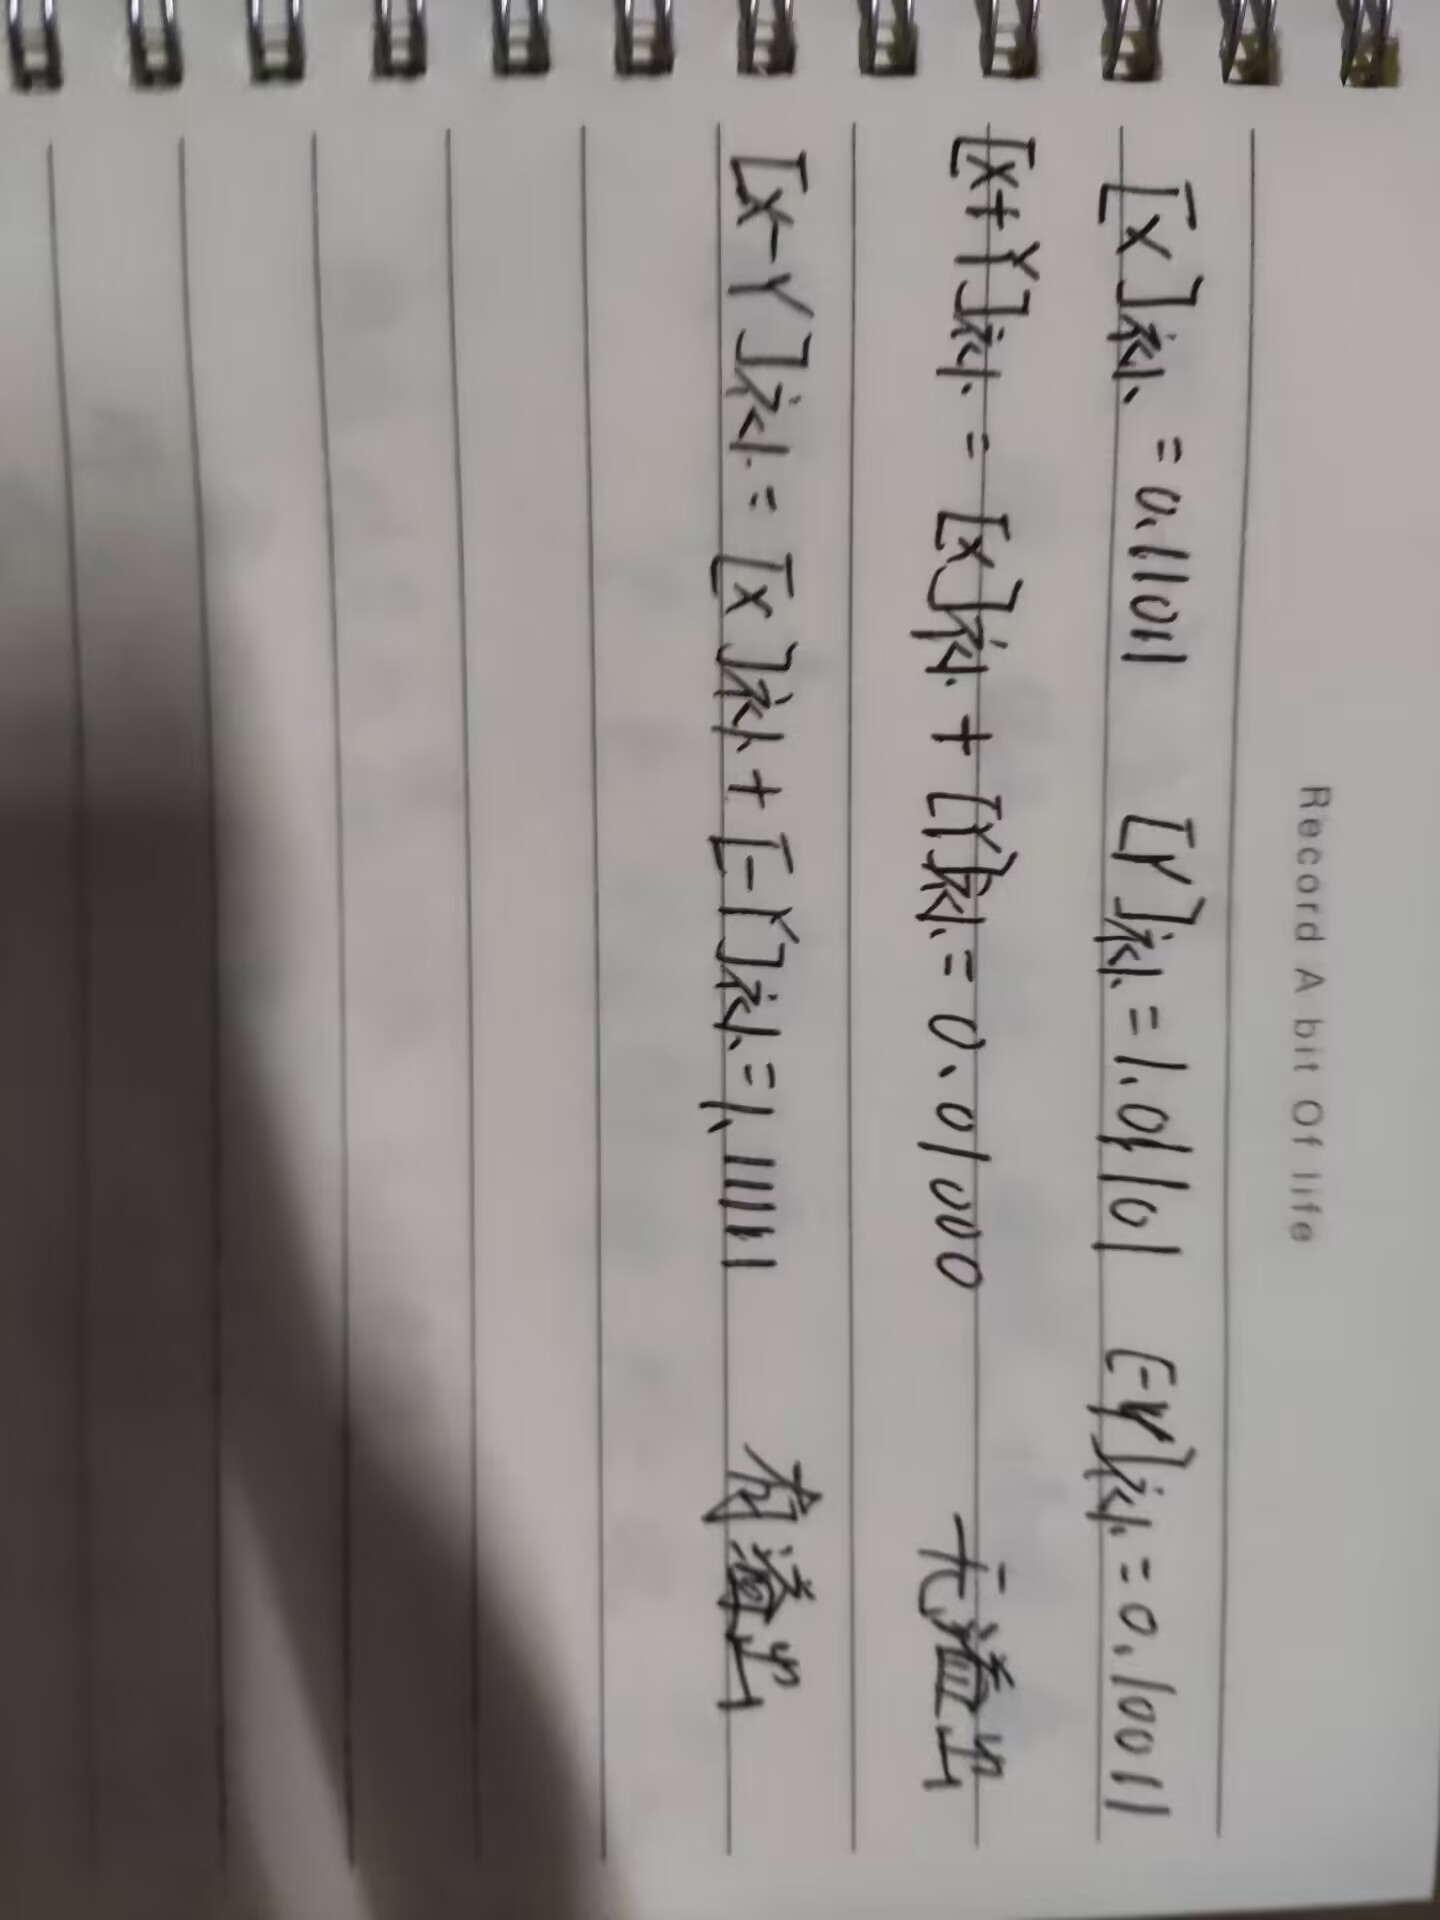 Record A bit Of life
[X]补 = 0.11011 [Y]补 = 1.01101 [-Y]补 = 0.10011
[X+Y]补 = [X]补 + [Y]补 = 0.01000 无溢出
[X-Y]补 = [X]补 + [-Y]补 = 1.11111 有溢出